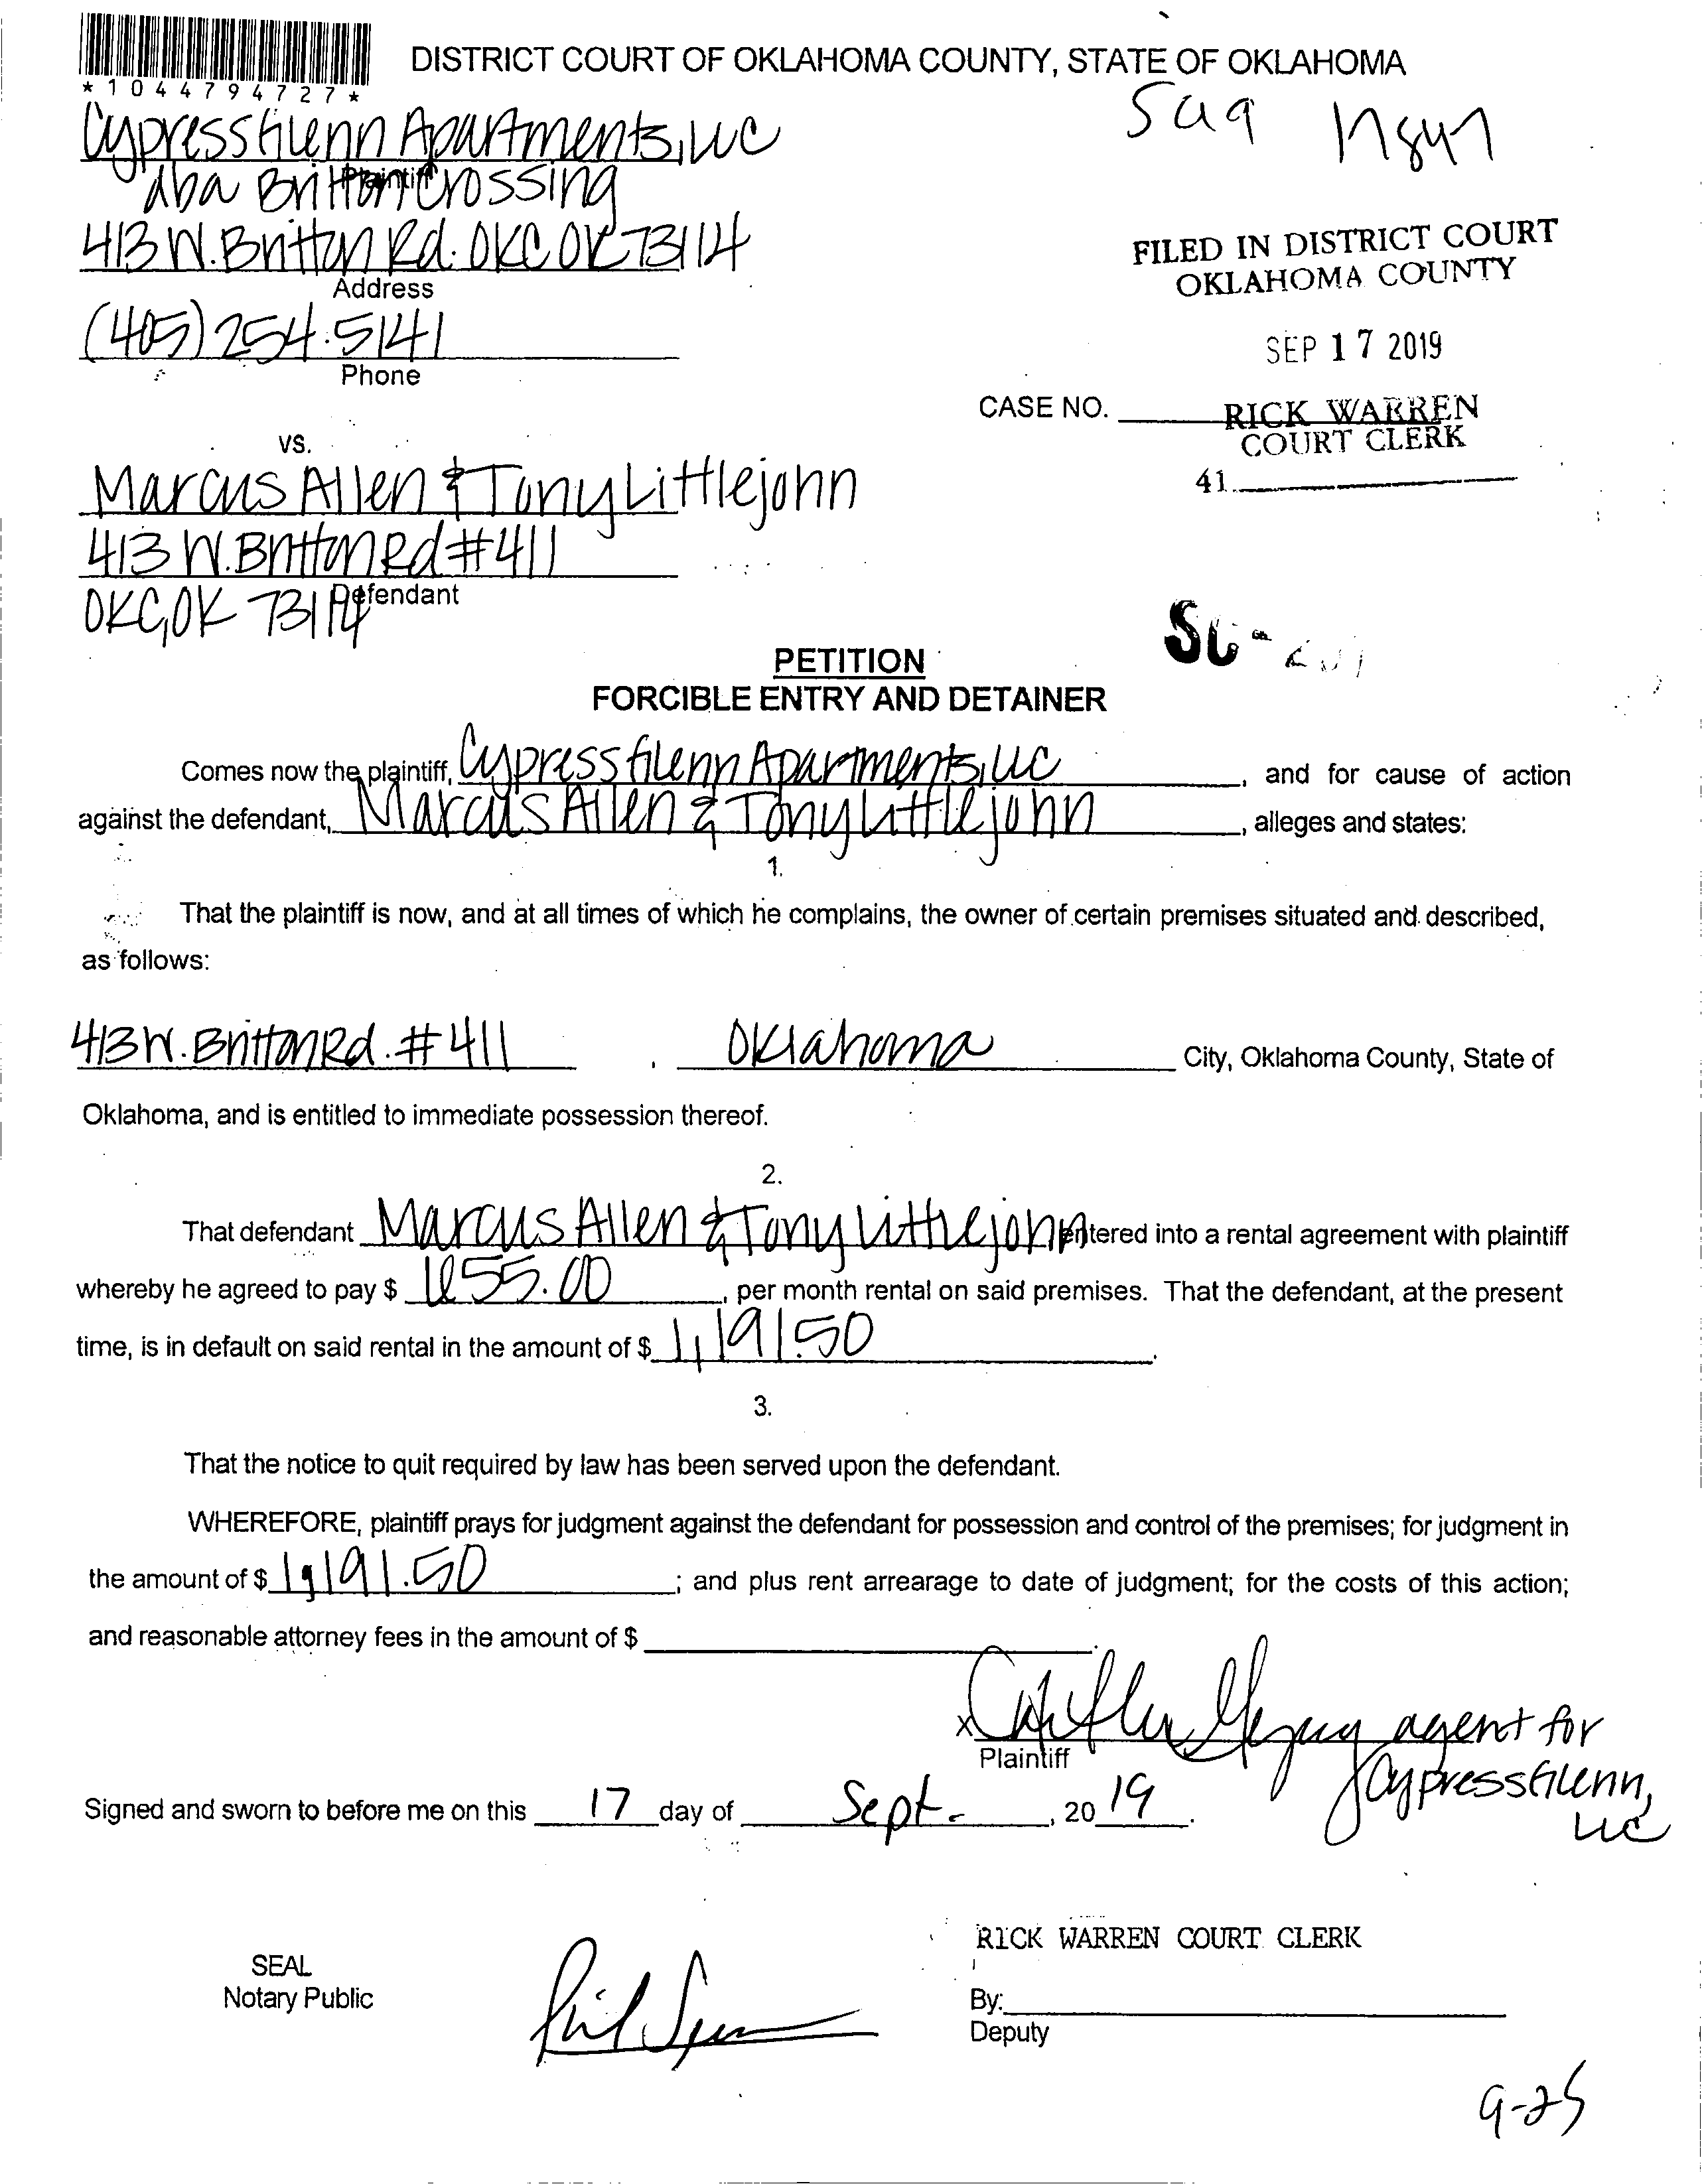 *1044794727*
DISTRICT COURT OF OKLAHOMA COUNTY, STATE OF OKLAHOMA
CypressGlenn Apartments, LLC
Plaintiff
dba Britton Crossing
413 W. Britton Rd. OKC OK 73114
Address
(405) 254.5141
Phone
FILED IN DISTRICT COURT
OKLAHOMA COUNTY
SEP 17 2019
CASE NO.
RICK WARREN
COURT CLERK
41
VS.
Marcus Allen & Tony Littlejohn
413 W. Britton Rd #411
Defendant
OKC, OK 73114
PETITION
FORCIBLE ENTRY AND DETAINER
Comes now the plaintiff, CypressGlenn Apartments, LLC, and for cause of action
against the defendant, Marcus Allen & Tony Littlejohn, alleges and states:
1.
That the plaintiff is now, and at all times of which he complains, the owner of certain premises situated and described,
as follows:
413 W. Britton Rd. #411, Oklahoma City, Oklahoma County, State of
Oklahoma, and is entitled to immediate possession thereof.
2.
That defendant Marcus Allen & Tony Littlejohn entered into a rental agreement with plaintiff
whereby he agreed to pay $ 655.00, per month rental on said premises. That the defendant, at the present
time, is in default on said rental in the amount of $ 1,191.50.
3.
That the notice to quit required by law has been served upon the defendant.
WHEREFORE, plaintiff prays for judgment against the defendant for possession and control of the premises; for judgment in
the amount of $ 1,191.50; and plus rent arrearage to date of judgment; for the costs of this action;
and reasonable attorney fees in the amount of $
X agent for
Plaintiff
CypressGlenn,
LLC
Signed and sworn to before me on this 17 day of Sept., 2019.
RICK WARREN COURT CLERK
SEAL
Notary Public
By:
Deputy
9-25